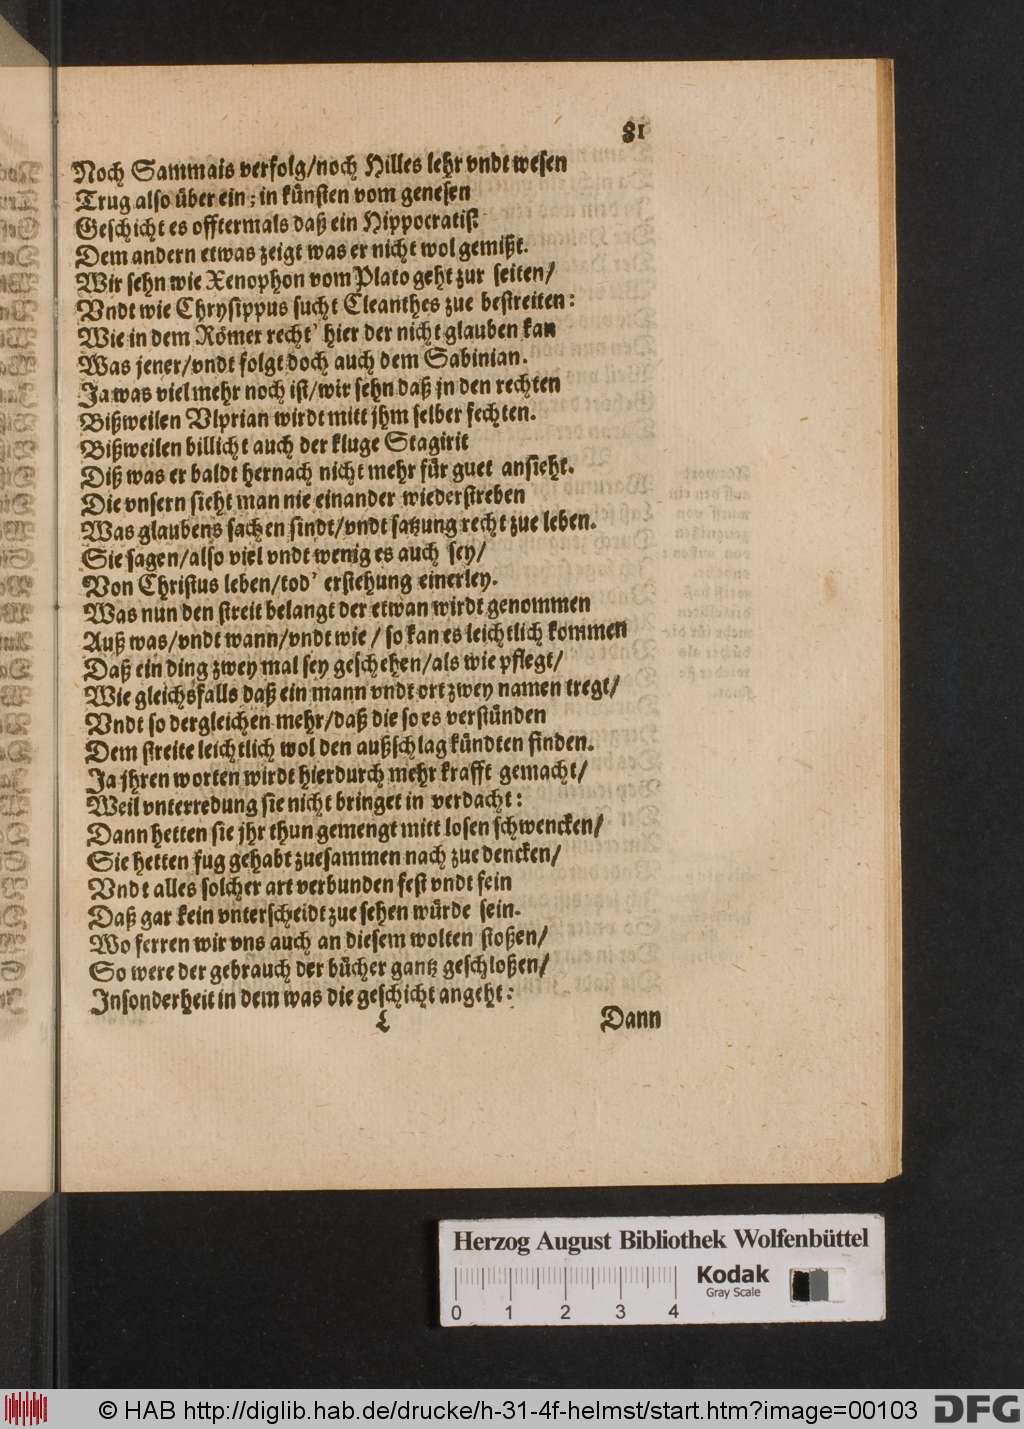 81
Noch Sammais verfolg/noch Hilles lehr vndt wesen
Trug also über ein; in künsten vom genesen
Geschicht es offtermals daß ein Hippocratist
Dem andern etwas zeigt was er nicht wol gemißt.
Wir sehn wie Xenophon vom Plato geht zur seiten/
Vndt wie Chrysippus sucht Cleanthes zue bestreiten:
Wie in dem Römer recht' hier der nicht glauben kan
Was jener/vndt folgt doch auch dem Sabinian.
Ja was viel mehr noch ist/wir sehn daß jn den rechten
Bißweilen Vlprian wirdt mitt jhm selber fechten.
Bißweilen billicht auch der kluge Stagirit
Diß was er baldt hernach nicht mehr für guet ansieht.
Die vnsern sieht man nie einander wiederstreben
Was glaubens sachen sindt/vndt satzung recht zue leben.
Sie sagen/also viel vndt wenig es auch sey/
Von Christus leben/tod' erstehung einerley.
Was nun den streit belangt der etwan wirdt genommen
Auß was/vndt wann/vndt wie / so kan es leichtlich kommen
Daß ein ding zwey mal sey geschehen/als wie pflegt/
Wie gleichsfalls daß ein mann vndt ort zwey namen tregt/
Vndt so dergleichen mehr/daß die so es verstünden
Dem streite leichtlich wol den außschlag kündten finden.
Ja jhren worten wirdt hierdurch mehr krafft gemacht/
Weil vnterredung sie nicht bringet in verdacht:
Dann hetten sie jhr thun gemengt mitt losen schwencken/
Sie hetten fug gehabt zuesammen nach zue dencken/
Vndt alles solcher art verbunden fest vndt fein
Daß gar kein vnterscheidt zue sehen würde sein.
Wo ferren wir vns auch an diesem wolten stoßen/
So were der gebrauch der bücher gantz geschloßen/
Insonderheit in dem was die geschicht angeht:
L Dann
Herzog August Bibliothek Wolfenbüttel
Kodak
Gray Scale
0 1 2 3 4
© HAB http://diglib.hab.de/drucke/h-31-4f-helmst/start.htm?image=00103
DFG